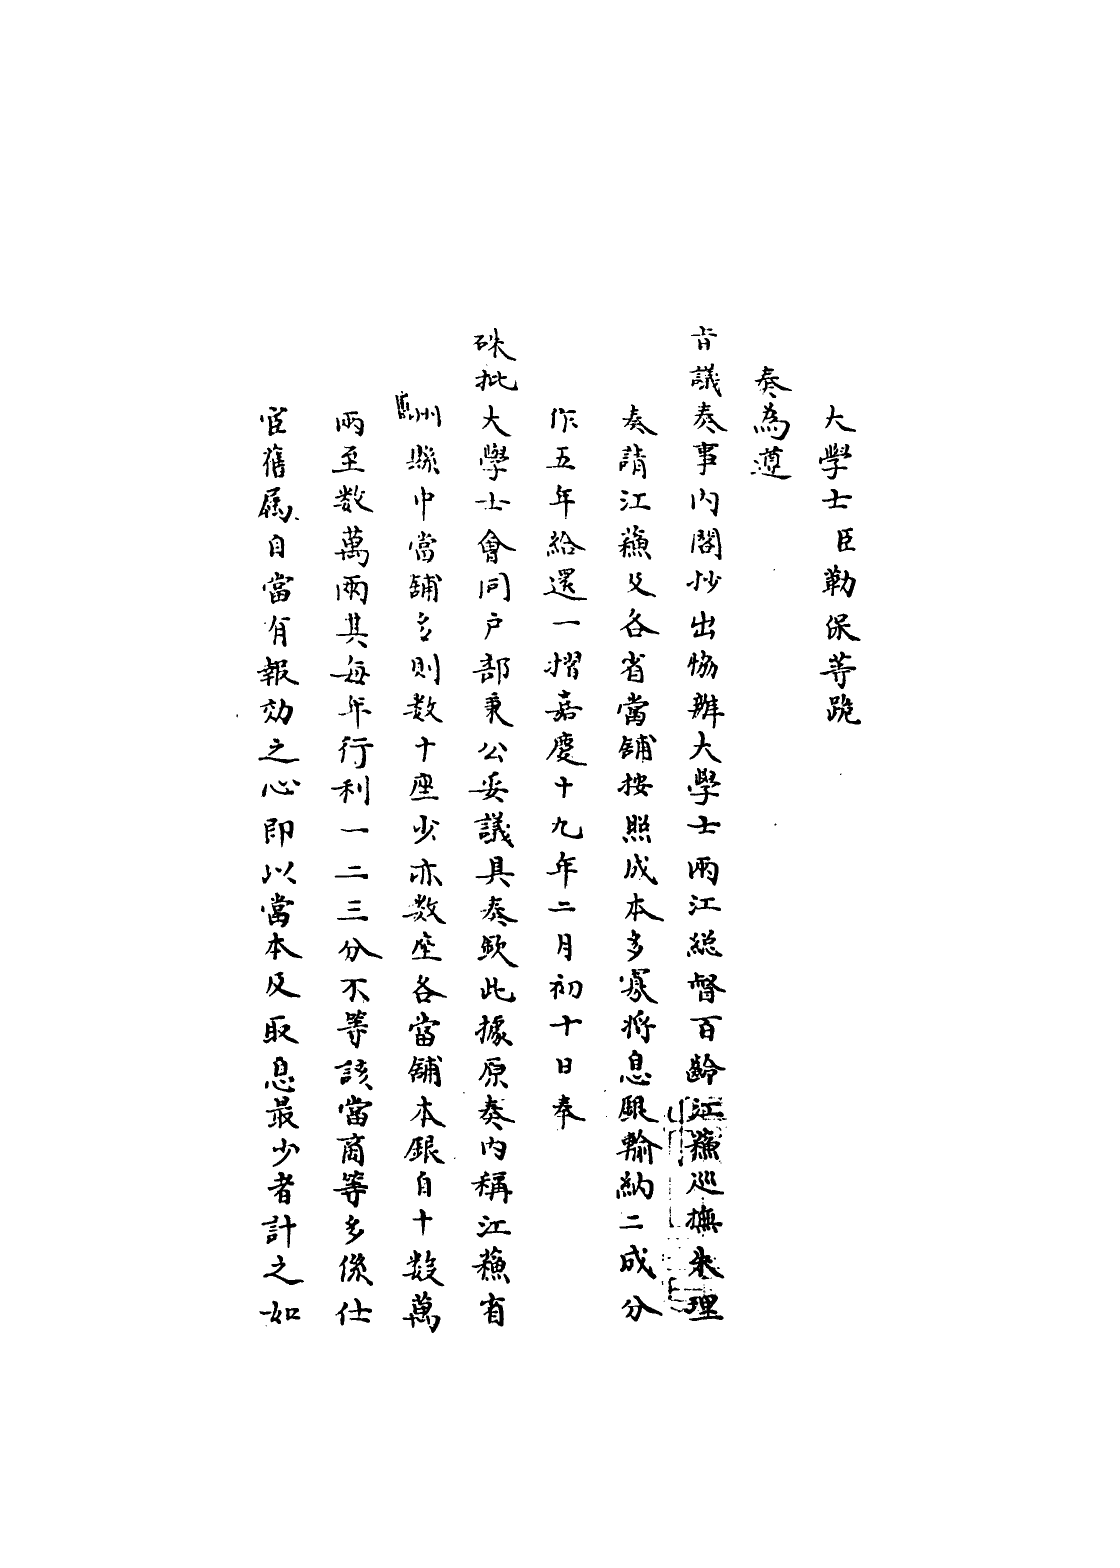 大學士臣勒保等跪
奏為遵
旨議奏事內閣抄出協辦大學士兩江總督百齡江蘇巡撫朱理
奏請江蘇及各省當舖按照成本多寡將息銀輸納二成分
作五年給還一摺嘉慶十九年二月初十日奉
硃批大學士會同户部秉公妥議具奏欽此據原奏內稱江蘇省
州縣中當舖多則数十座少亦数座各當舖本銀自十數萬
兩至数萬兩其每年行利一二三分不等該當商等多係仕
宦舊属自當有報効之心即以當本及取息最少者計之如